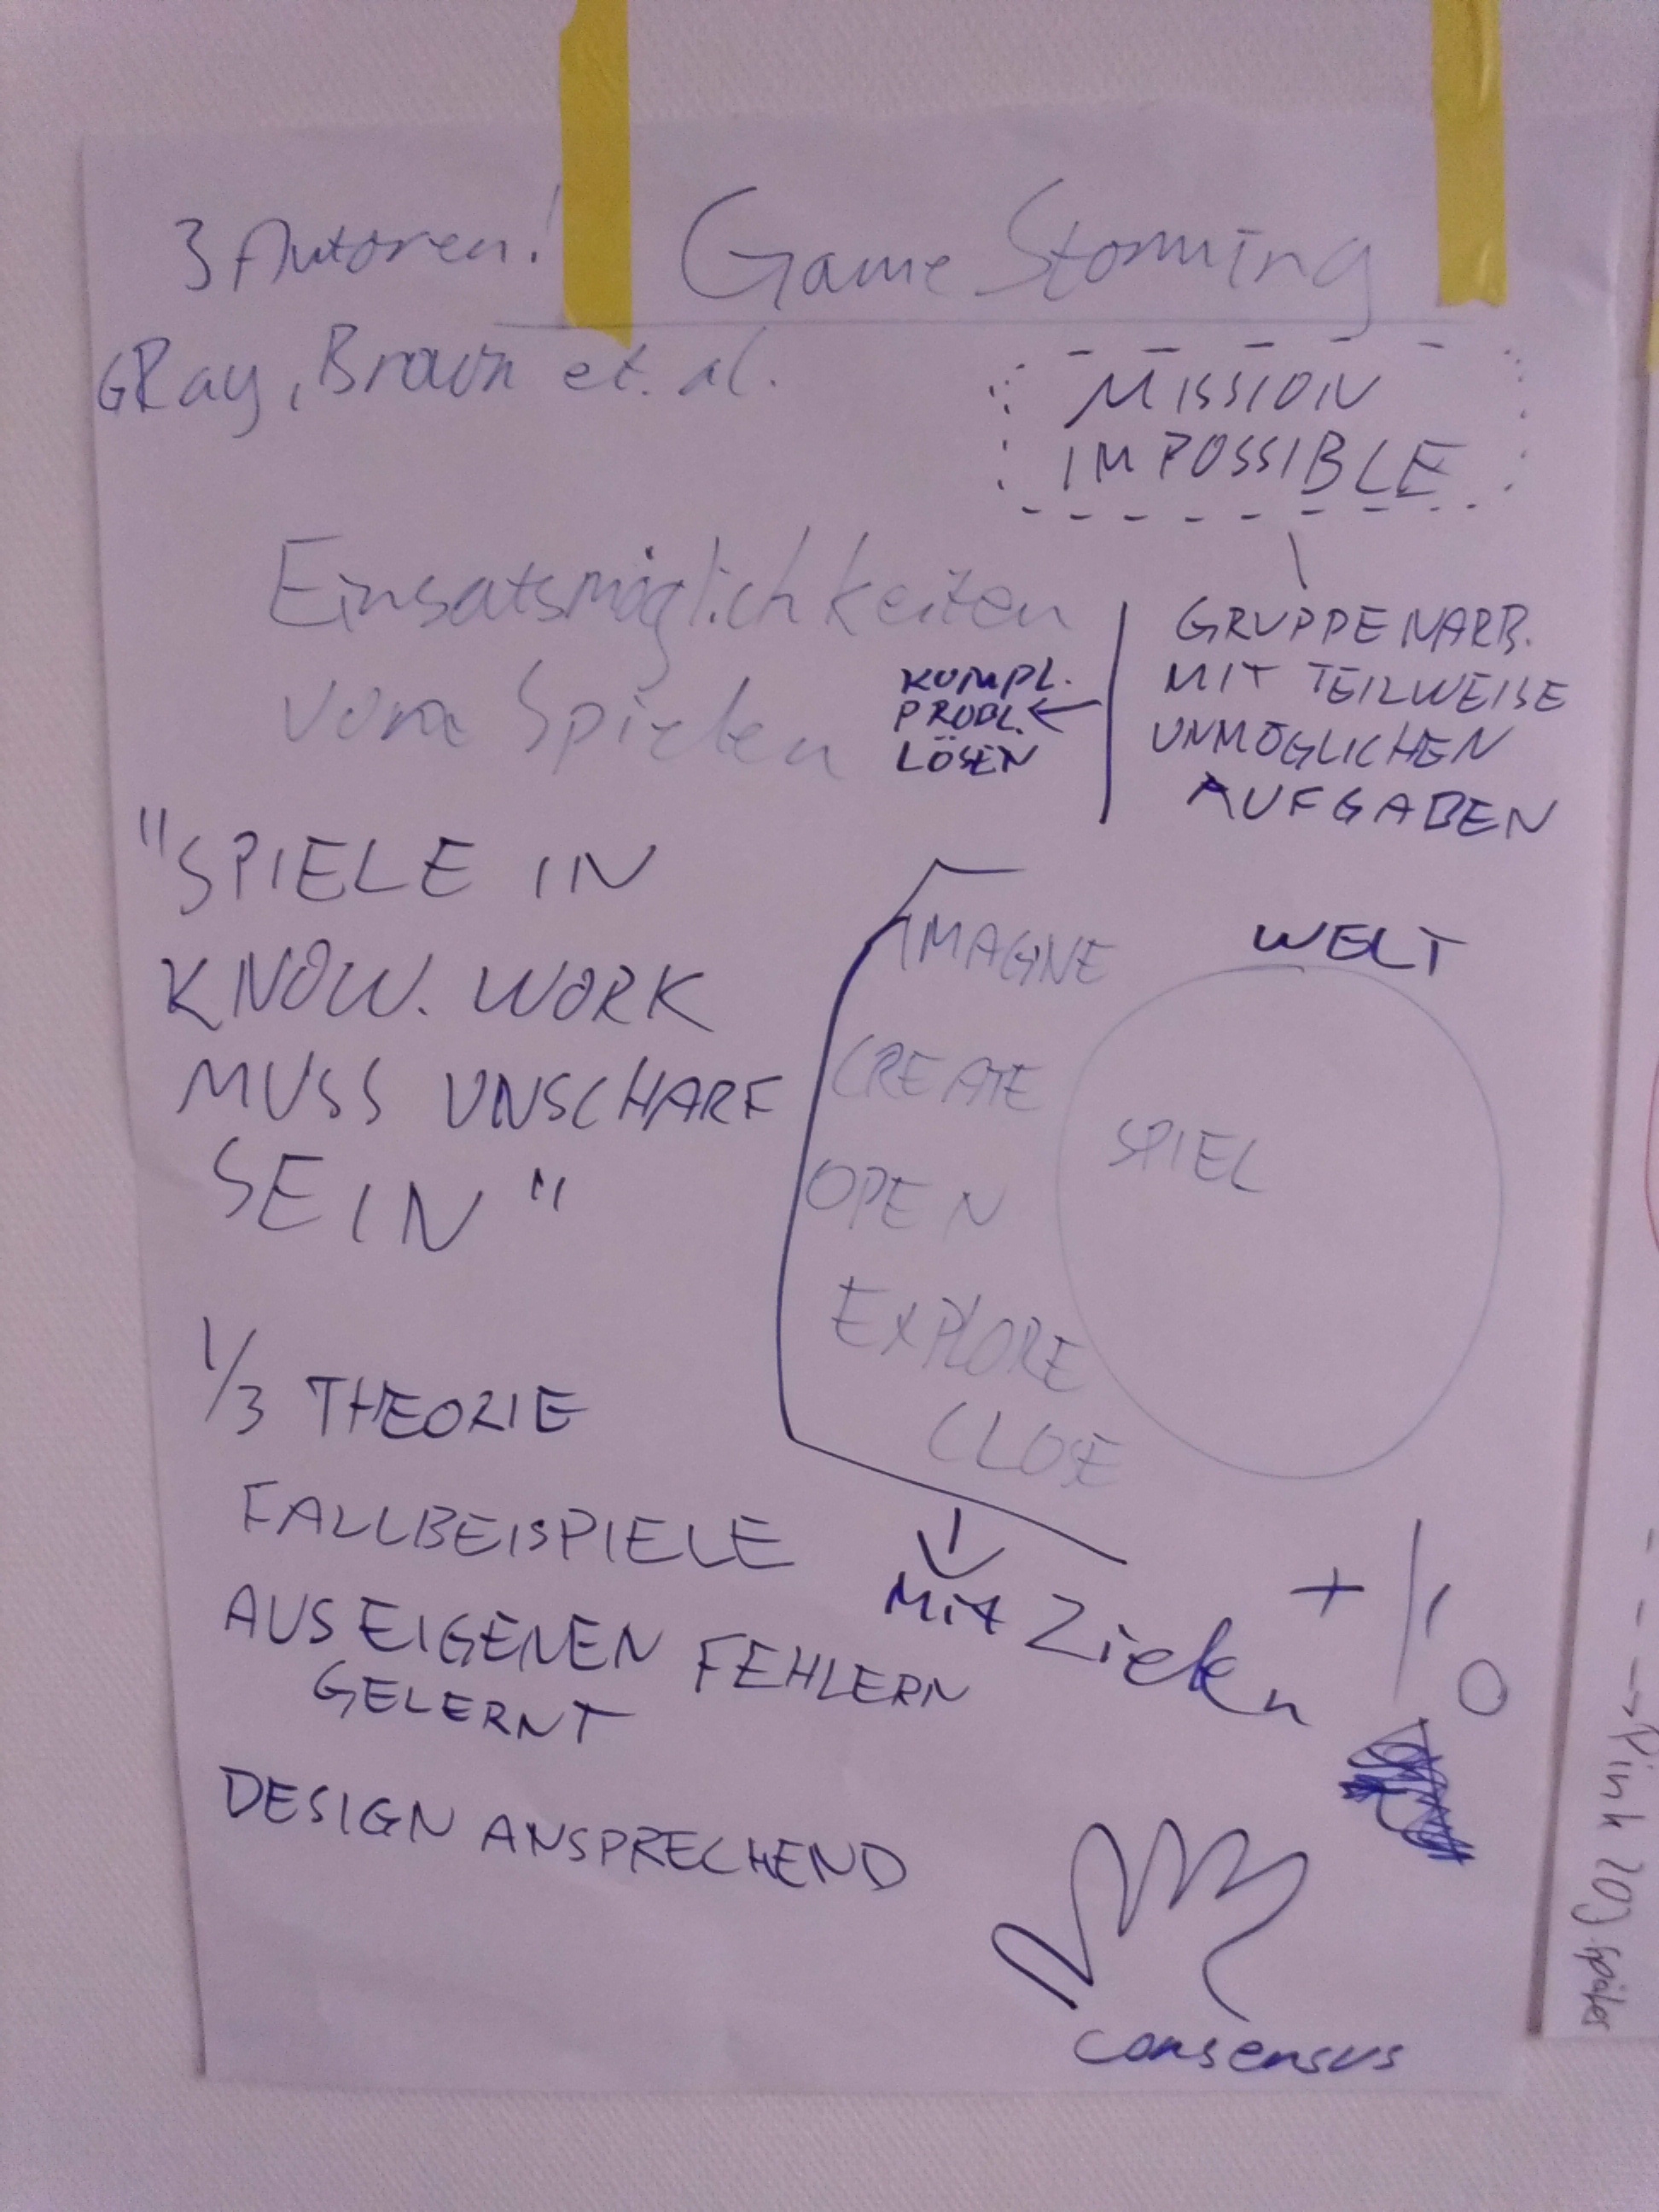 3 Autoren!
Game Storming
GRay, Brown et. al.
MISSION
IMPOSSIBLE
Einsatsmöglichkeiten
von Spielen
KOMPL.
PROBL.
LÖSEN
GRUPPENARB.
MIT TEILWEISE
UNMÖGLICHEN
AUFGABEN
"SPIELE IN
KNOW. WORK
MUSS UNSCHARF
SEIN"
IMAGINE
CREATE
OPEN
EXPLORE
CLOSE
WELT
SPIEL
Mit Zielen
1/3 THEORIE
FALLBEISPIELE
AUS EIGENEN FEHLERN
GELERNT
DESIGN ANSPRECHEND
consensus
Pink später